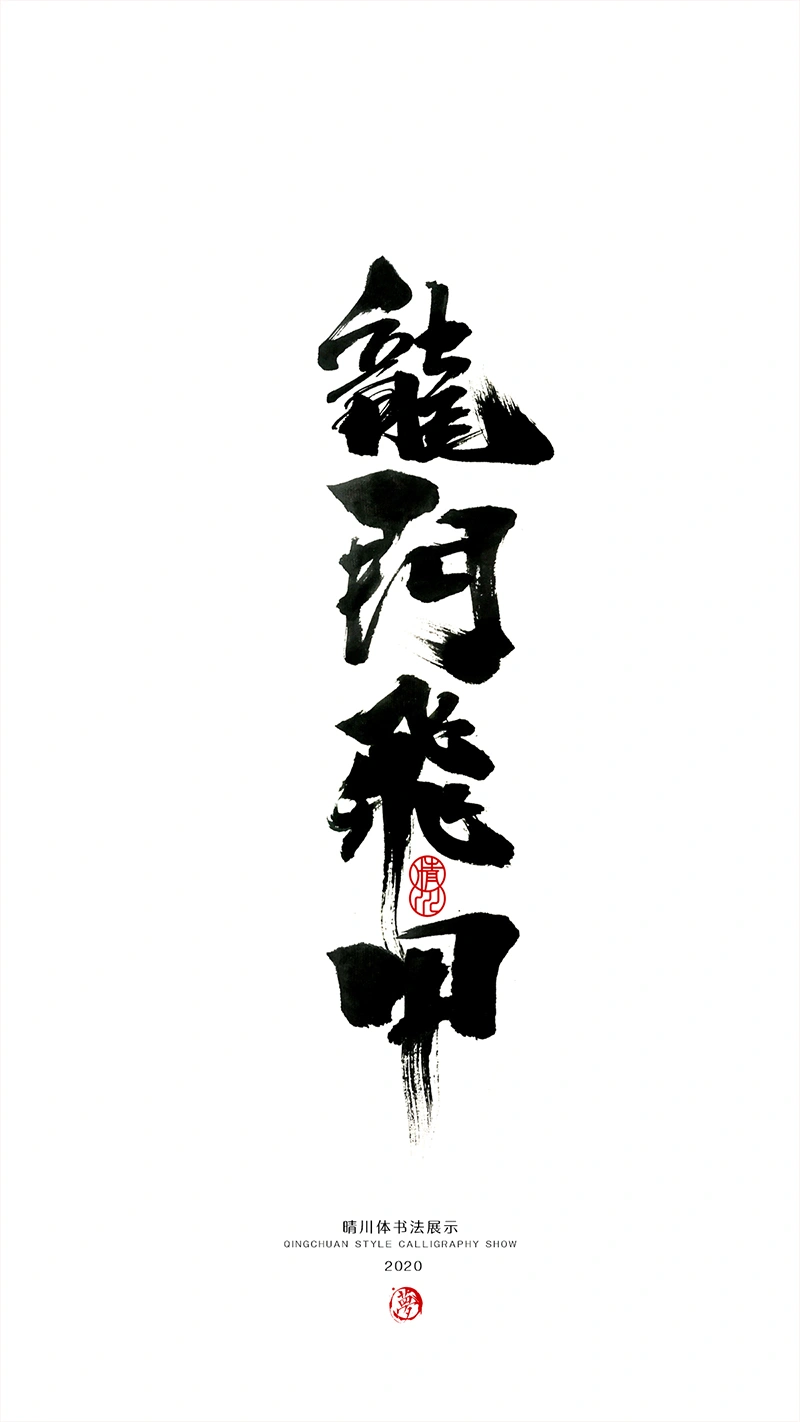 龍門飛甲
晴川
晴川体书法展示
QINGCHUAN STYLE CALLIGRAPHY SHOW
2020
夢